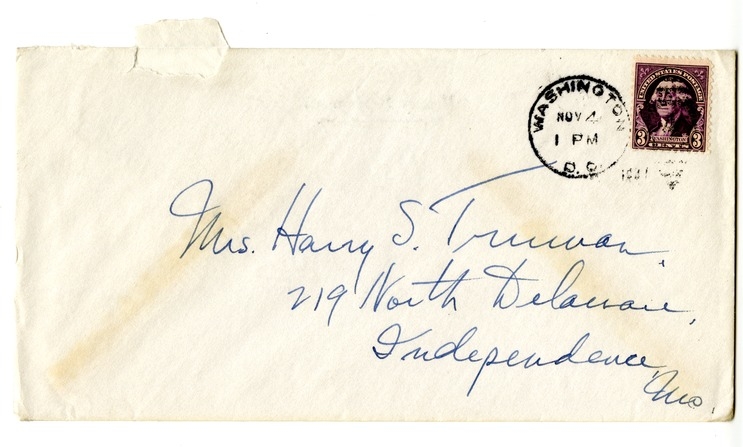 WASHINGTON
NOV 4
1 PM
D. C.
UNITED STATES POSTAGE
3 WASHINGTON 3
CENTS
Mrs. Harry S. Truman,
219 North Delaware,
Independence,
Mo.